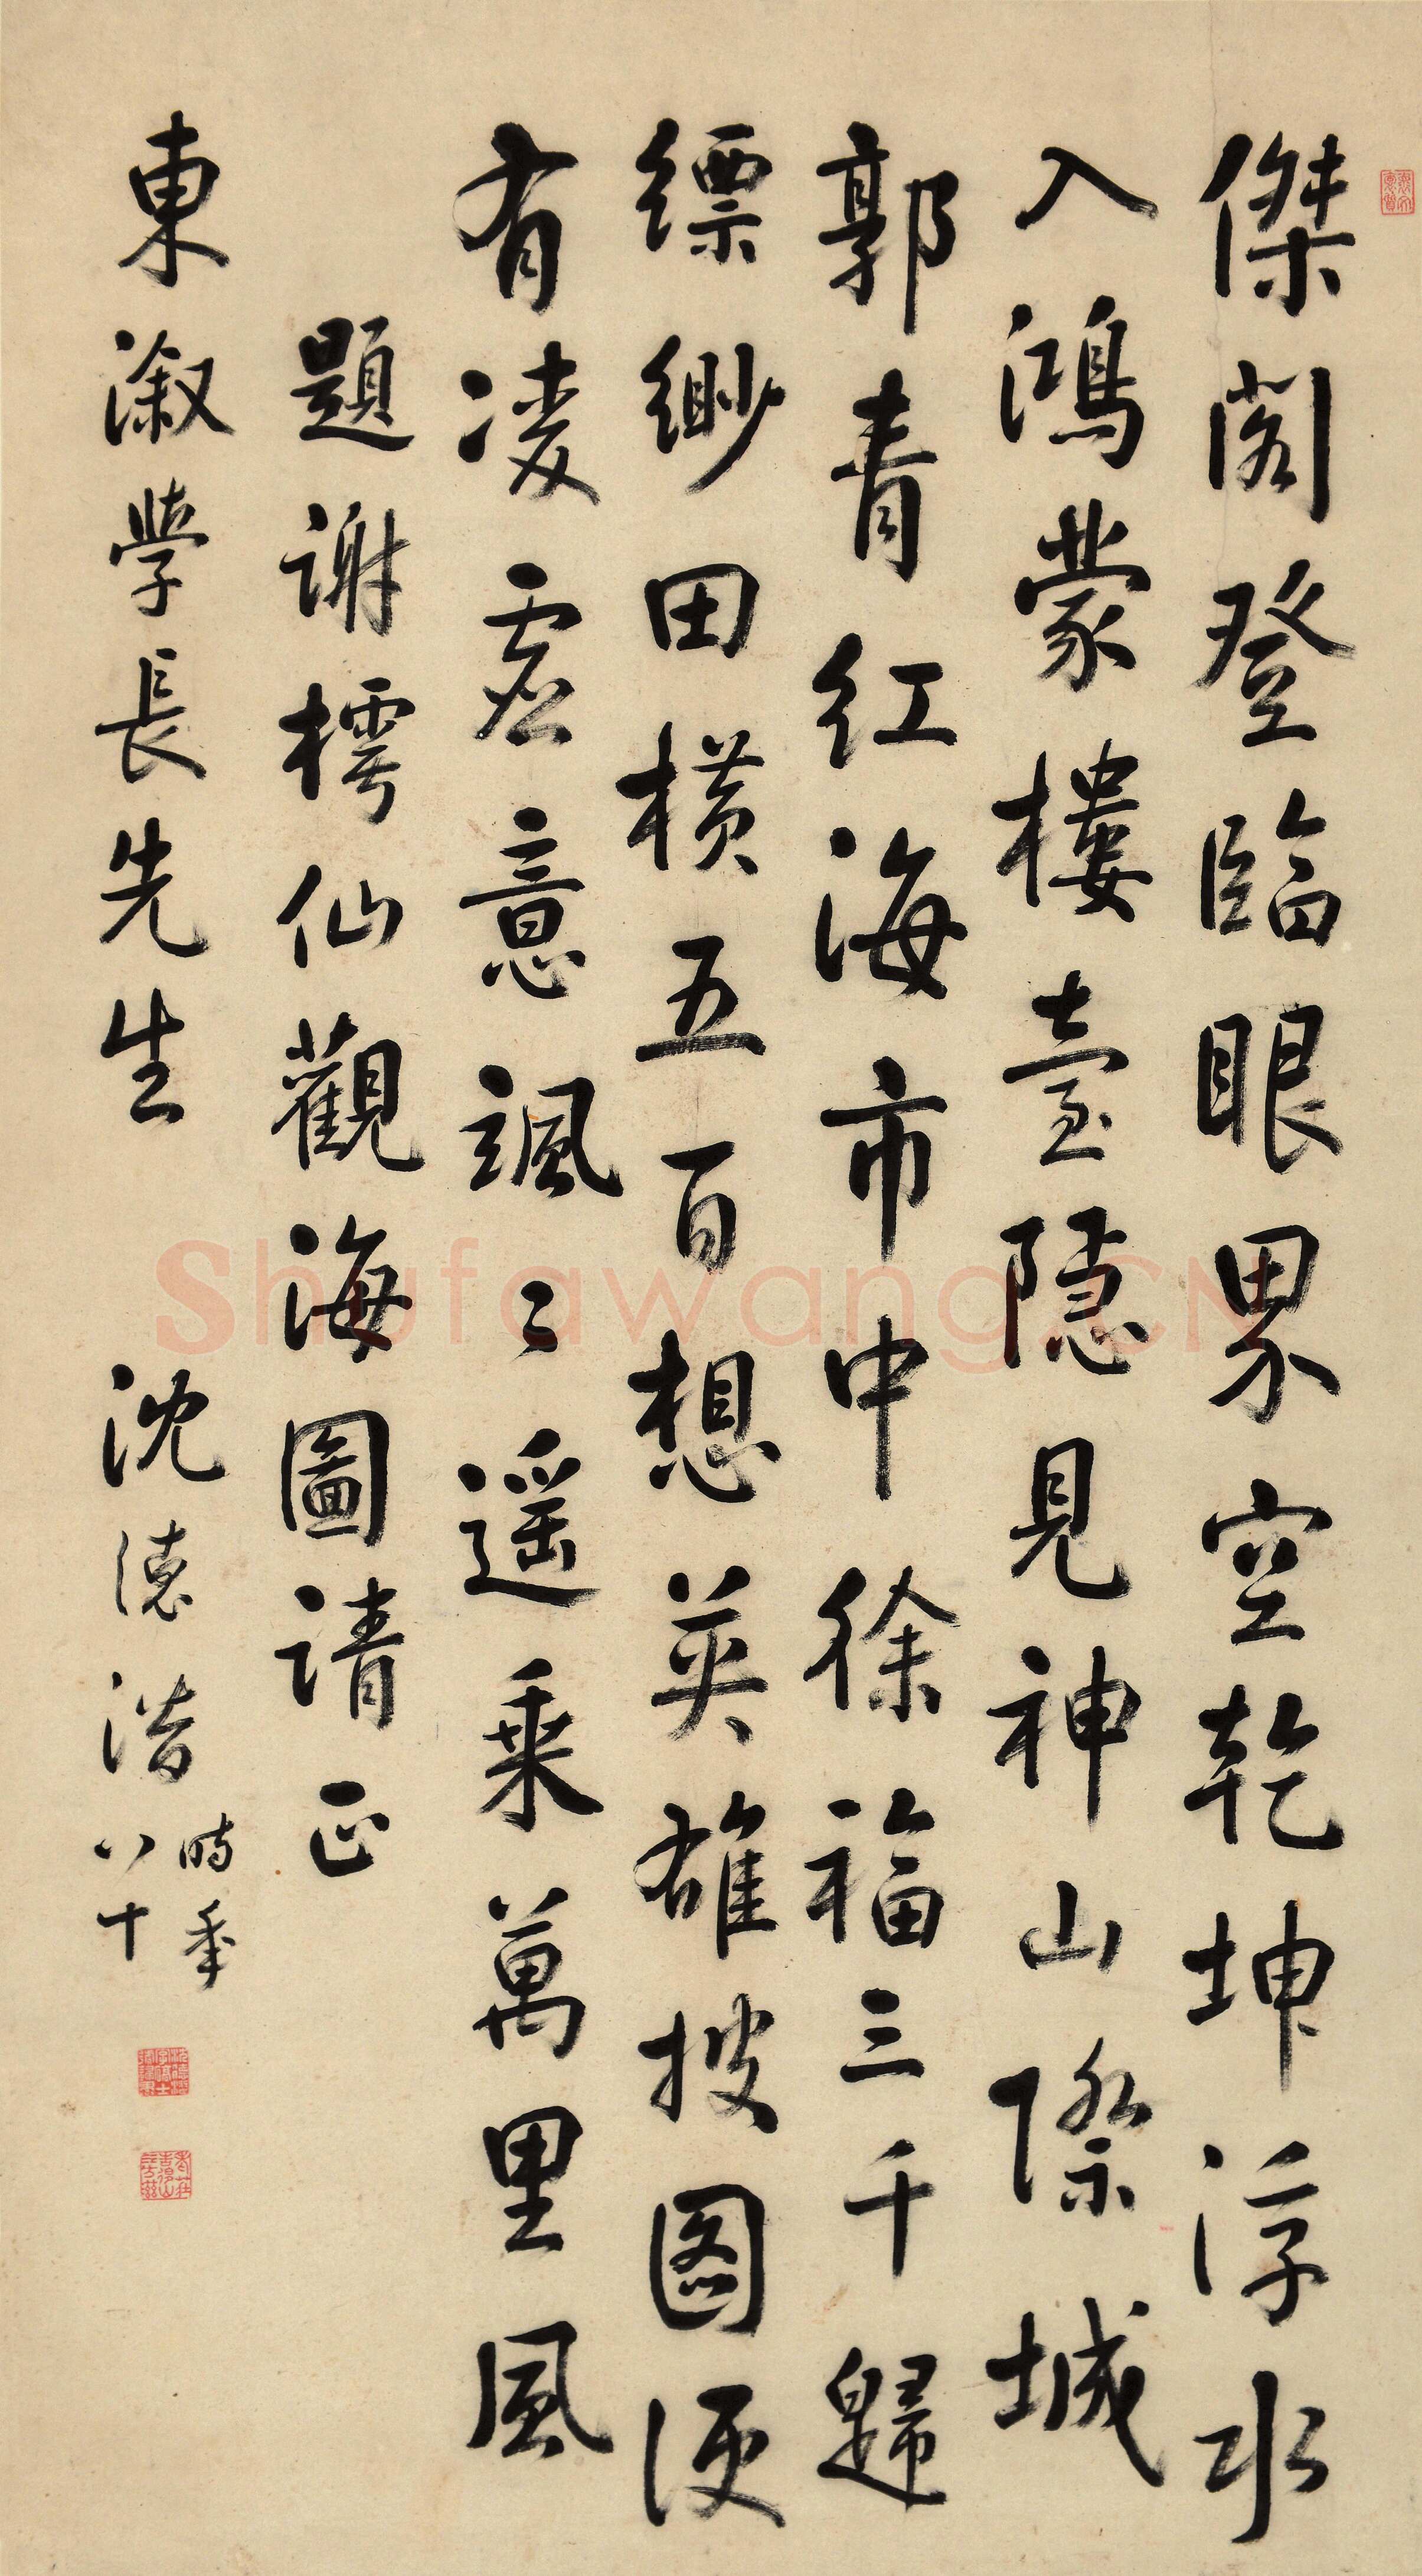 傑閣登臨眼界空乾坤浮水
入鴻蒙樓臺隱見神山際城
郭青紅海市中徐福三千歸
縹緲田橫五百想英雄披圖便
有凌虛意颯〻遥乘萬里風
題謝樗仙觀海圖請正
東溆學長先生 沈德潛 時年
八十
Shufawang.CN